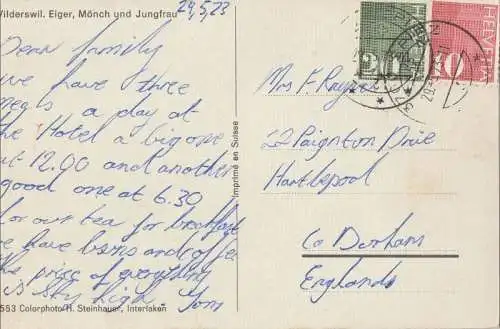 Wilderswil. Eiger, Mönch und Jungfrau
29,5,23
Dear family
we have three
meals a day at
the Hotel a big one
at 12.00 and another
good one at 6.30
for our tea for breakfast
we have buns and coffee
the price of everything
is sky high Tom
583 Colorphoto H. Steinhauer, Interlaken
Imprimé en Suisse
HELVETIA
HELVETIA
Mrs F. Rayner
22 Paignton Drie
Hartlepool
Co Durham
England